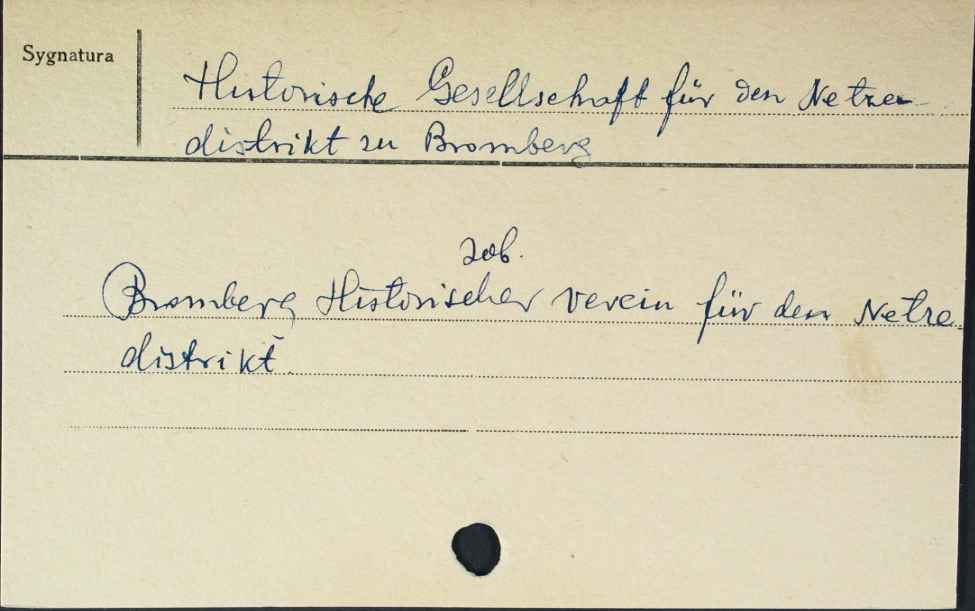 Sygnatura
Historische Gesellschaft für den Netze-
distrikt zu Bromberg
zob.
Bromberg Historischer Verein für den Netze-
distrikt